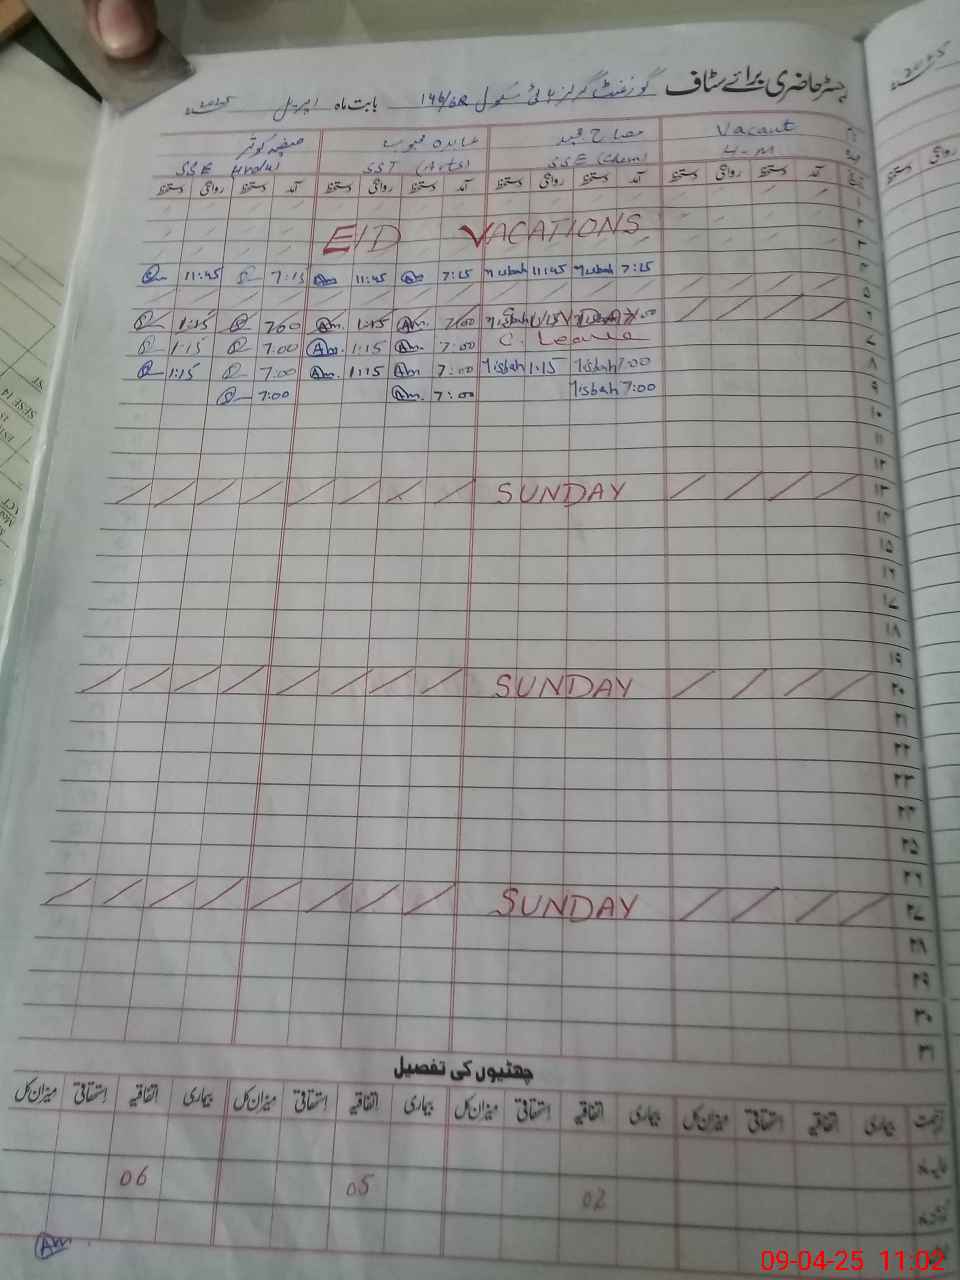 رجسٹر حاضری برائے سٹاف گورنمنٹ گرلز ہائی سکول 146/6R بابت ماہ اپریل 2025
Vacant
4-M
SSE (Chem)
SST (Arts)
SSE (Urdu)
آمد دستخط روانگی دستخط آمد دستخط روانگی دستخط آمد دستخط روانگی دستخط آمد دستخط روانگی دستخط
۱
۲ EID VACATIONS
۳
۴ 7:15 Misbah 11:45 Misbah 7:15 Am 11:45 Am 7:15 11:45
۵
۶ 7:00 Misbah 1:15 Misbah 7:00 Am. 1:15 Am. 7:00 1:15
۷ C. Leave 7:00 Am. 1:15 Am. 7:00 1:15
۸ 7:00 Misbah 1:15 Misbah 7:00 Am 1:15 Am. 7:00 1:15
۹ 7:00 Misbah 7:00 Am. 7:00
۱۰
۱۱
۱۲
۱۳ SUNDAY
۱۴
۱۵
۱۶
۱۷
۱۸
۱۹
۲۰ SUNDAY
۲۱
۲۲
۲۳
۲۴
۲۵
۲۶
۲۷ SUNDAY
۲۸
۲۹
۳۰
۳۱
چھٹیوں کی تفصیل
بیماری اتفاقیہ استحقاقی میزان کل بیماری اتفاقیہ استحقاقی میزان کل بیماری اتفاقیہ استحقاقی میزان کل بیماری اتفاقیہ استحقاقی میزان کل
02 05 06
Am
09-04-25 11:02